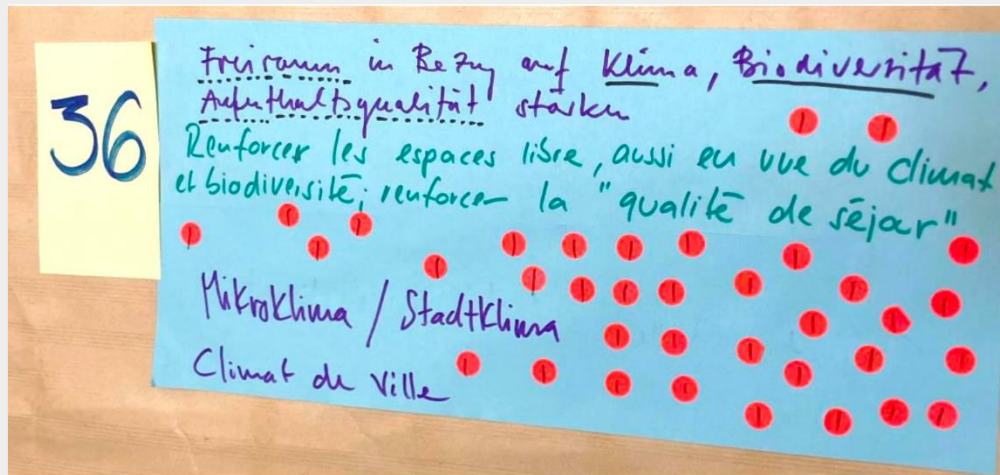 36
Freiraum in Bezug auf Klima, Biodiversität,
Aufenthaltsqualität stärken
Renforcer les espaces libre, aussi en vue du climat
et biodiversité; renforcer la "qualité de séjar"
Mikroklima / Stadtklima
Climat de Ville